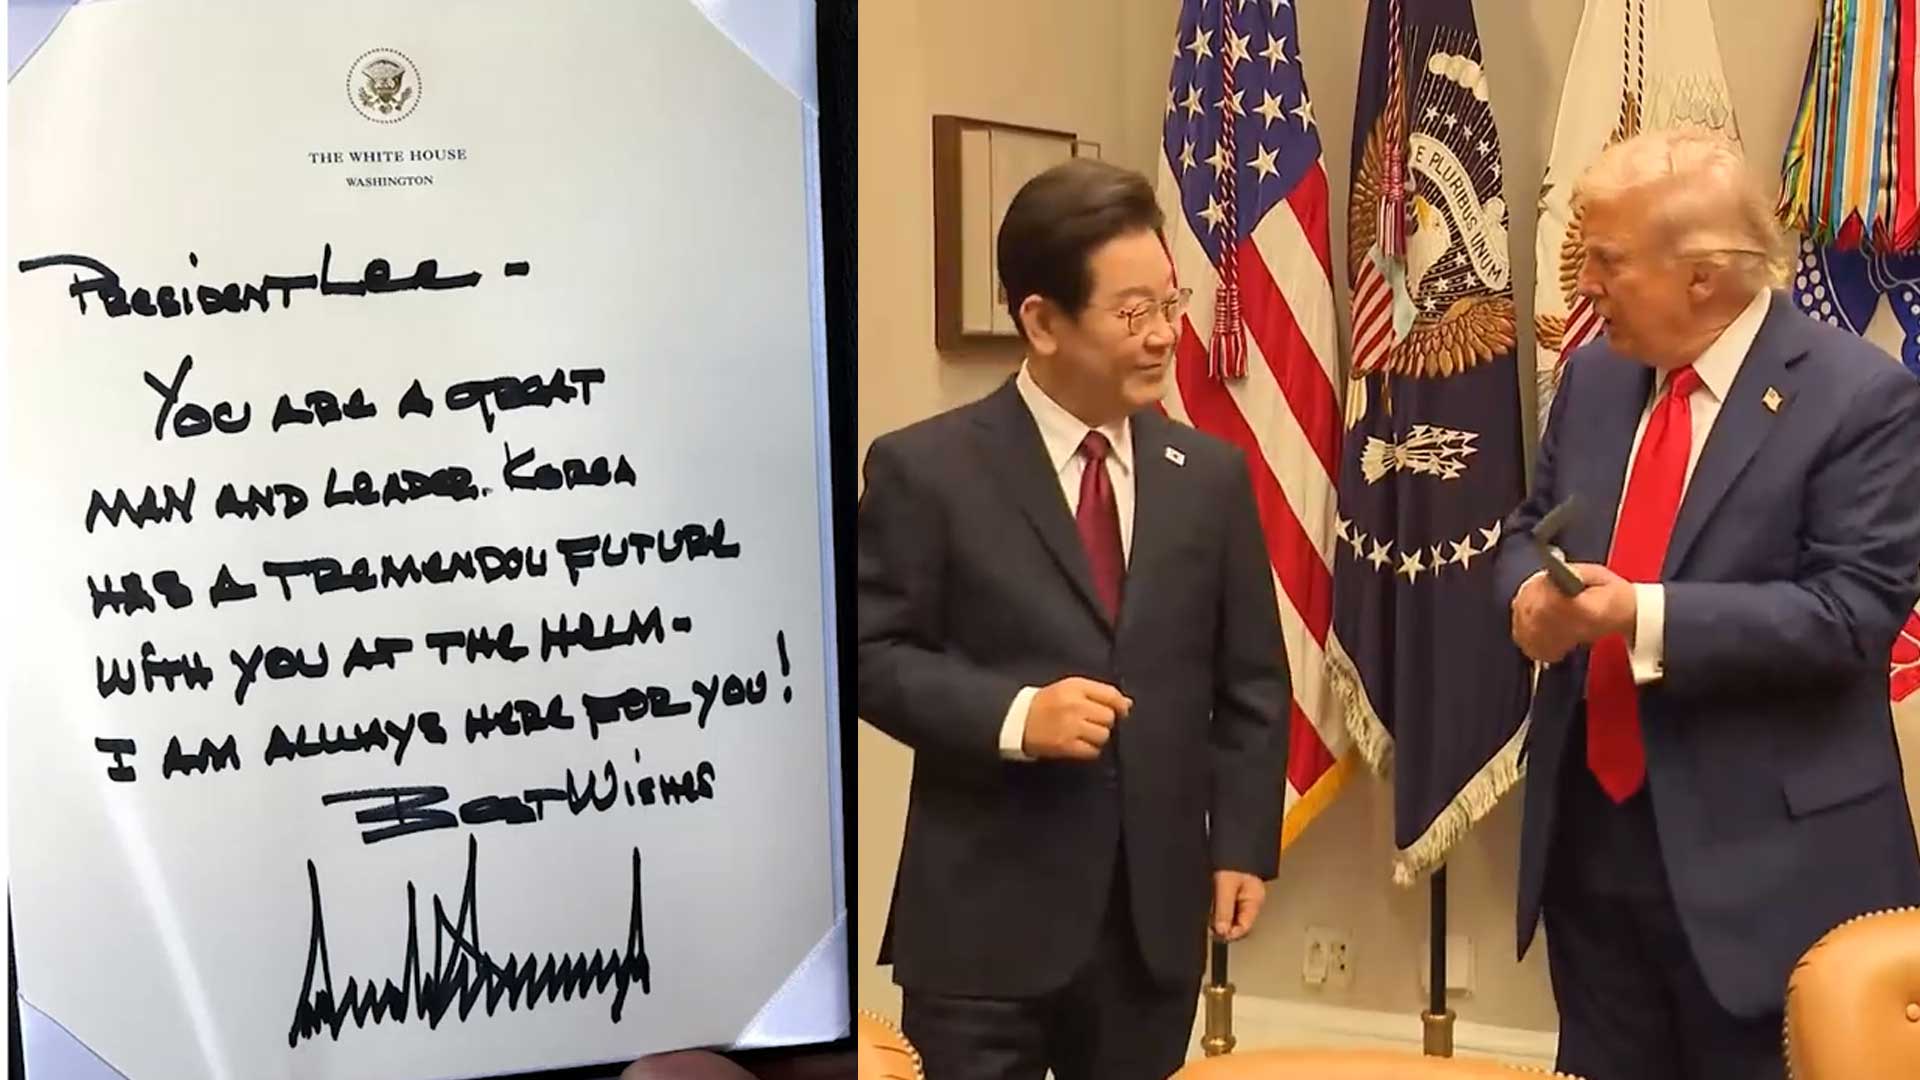 THE WHITE HOUSE
WASHINGTON
PRESIDENT LEE -
YOU ARE A GREAT
MAN AND LEADER. KOREA
HAS A TREMENDOU FUTURE
WITH YOU AT THE HELM-
I AM ALWAYS HERE FOR YOU!
BEST WISHES
E PLURIBUS UNUM